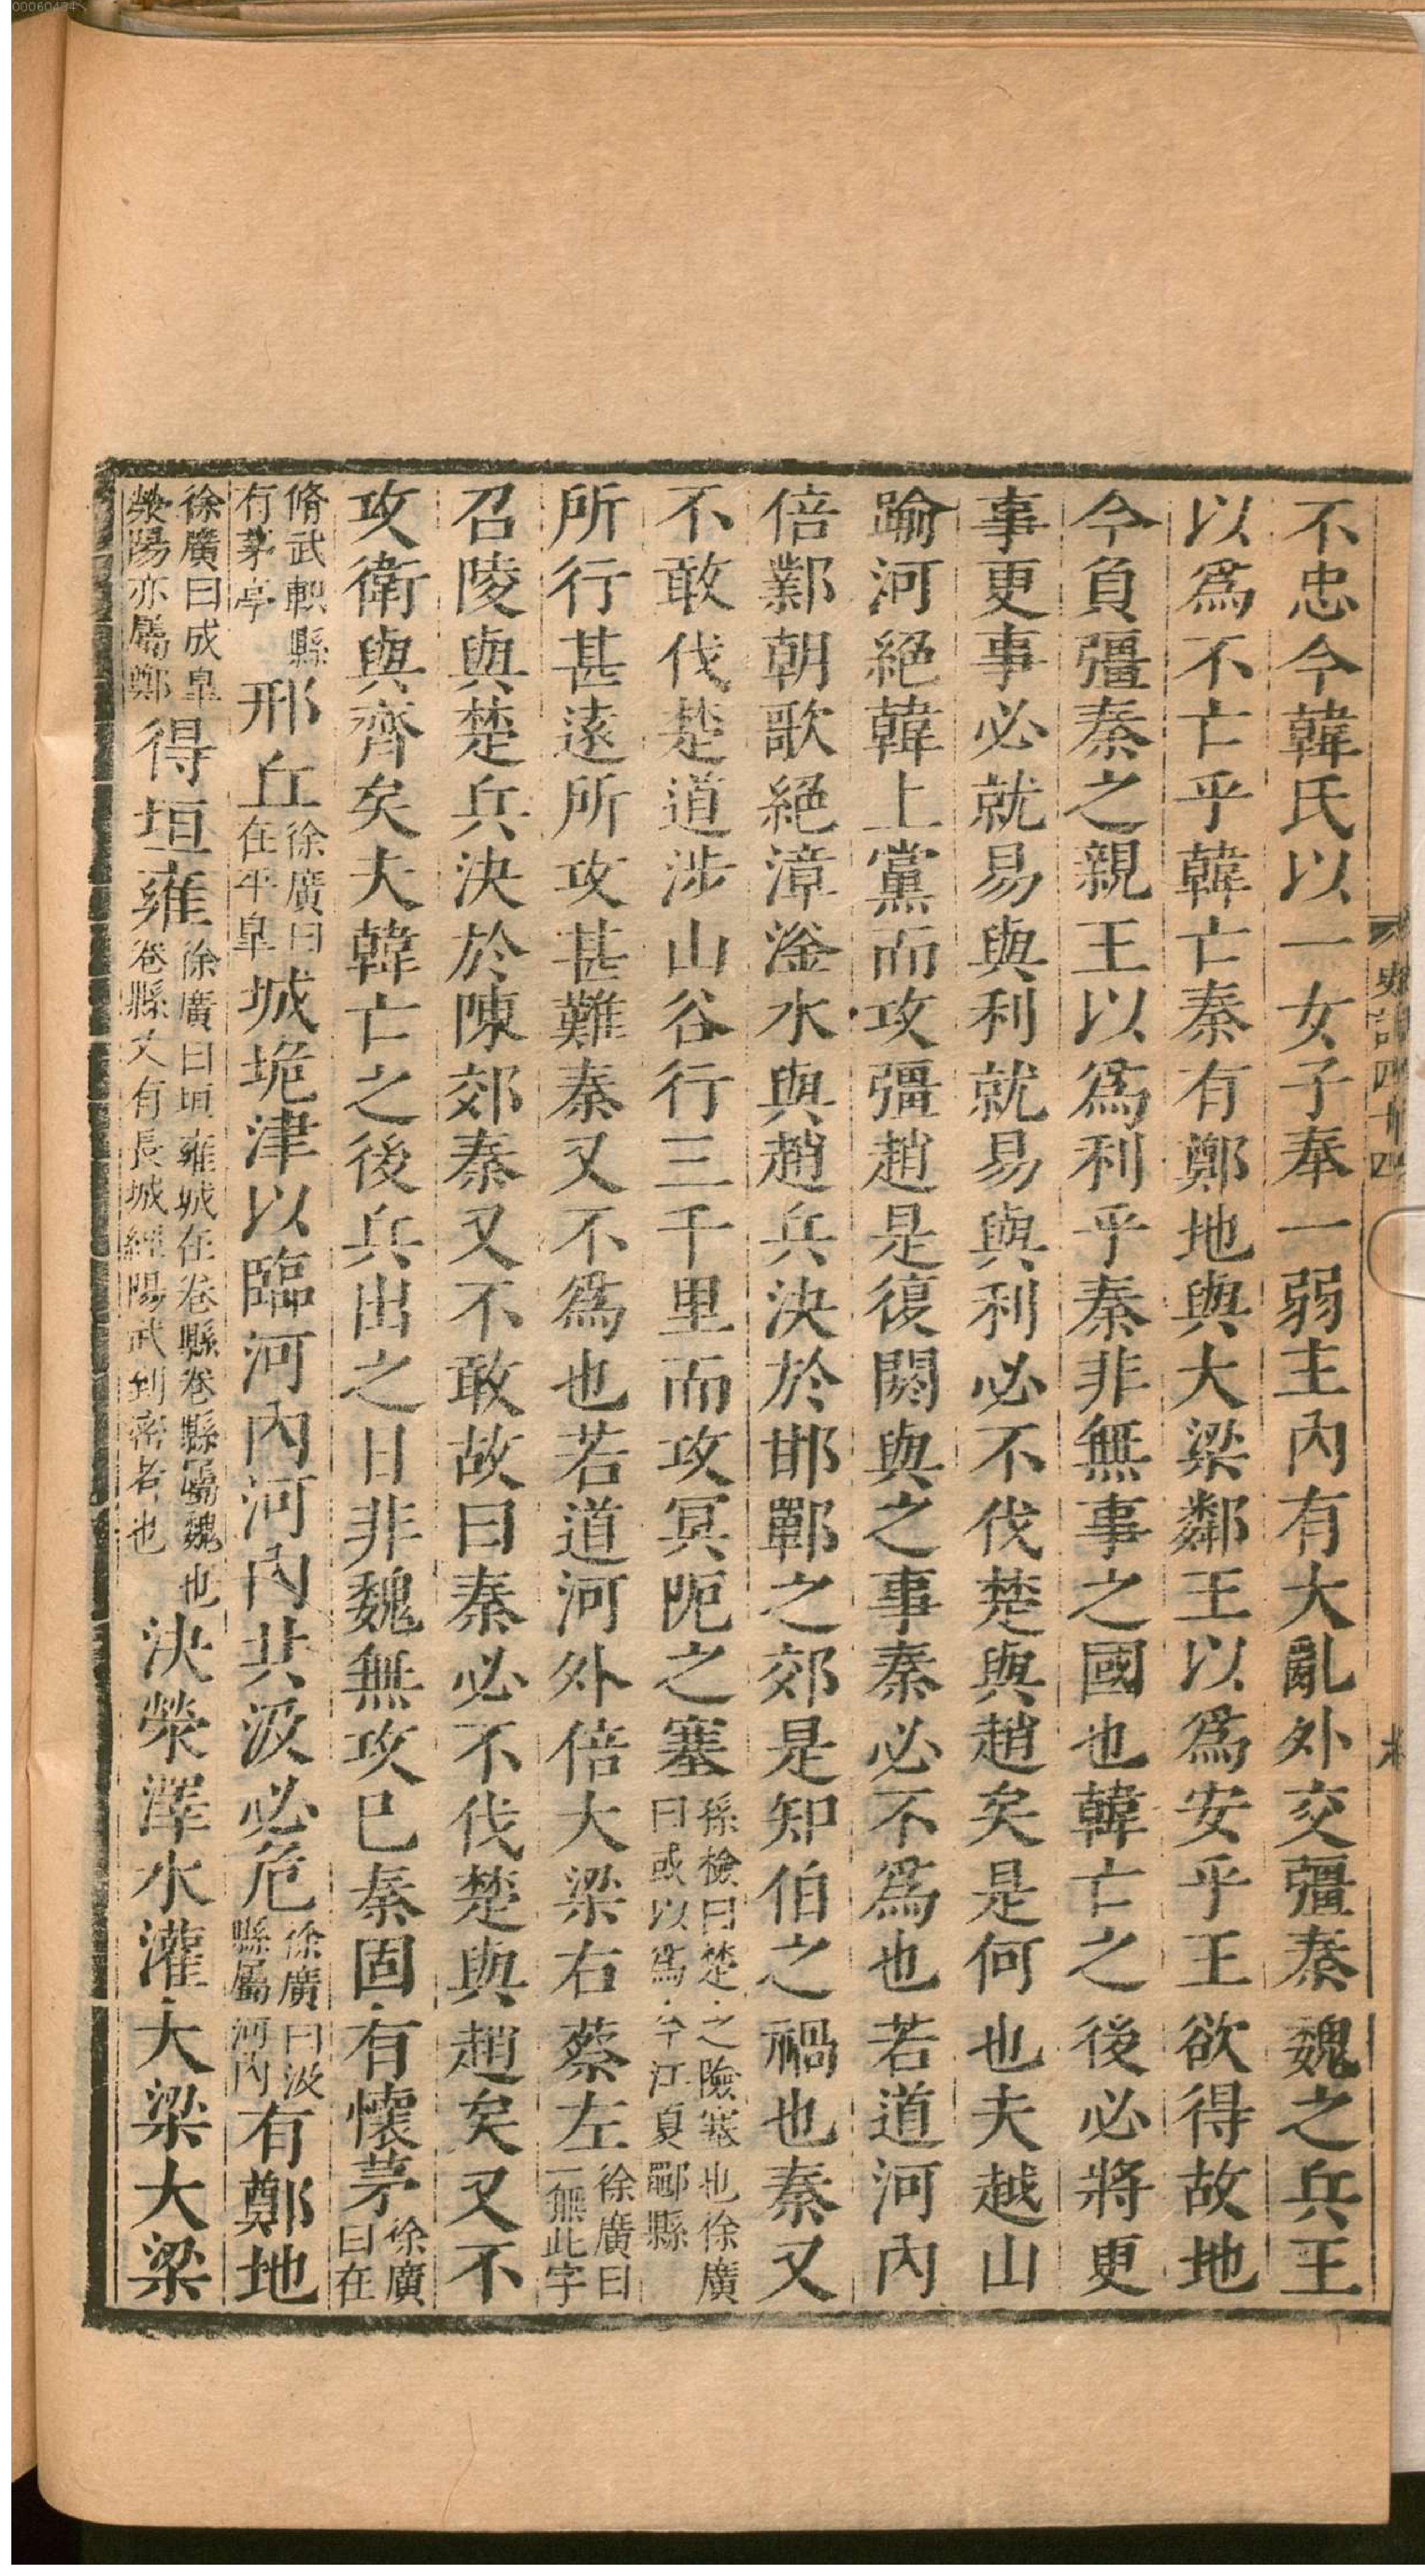 不忠今韓氏以一女子奉一弱主內有大亂外交彊秦魏之兵王
以爲不亡乎韓亡秦有鄭地與大梁鄰王以爲安乎王欲得故地
今負彊秦之親王以爲利乎秦非無事之國也韓亡之後必將更
事更事必就易與利就易與利必不伐楚與趙矣是何也夫越山
踰河絕韓上黨而攻彊趙是復閼與之事秦必不爲也若道河內
倍鄴朝歌絕漳滏水與趙兵決於邯鄲之郊是知伯之禍也秦又
不敢伐楚道涉山谷行三千里而攻冥阨之塞孫檢曰楚之險塞也徐廣曰或以爲今江夏鄳縣
所行甚遠所攻甚難秦又不爲也若道河外倍大梁右蔡左徐廣曰一無此字
召陵與楚兵決於陳郊秦又不敢故曰秦必不伐楚與趙矣又不
攻衛與齊矣夫韓亡之後兵出之日非魏無攻已秦固有懷茅徐廣曰在
脩武軹縣有茅亭邢丘徐廣曰在平臯城垝津以臨河內河內共汲必危徐廣曰汲縣屬河內有鄭地
徐廣曰成臯滎陽亦屬鄭得垣雍徐廣曰垣雍城在卷縣卷縣屬魏也卷縣又有長城經陽武到密者也決滎澤水灌大梁大梁
史記四十四
00060434